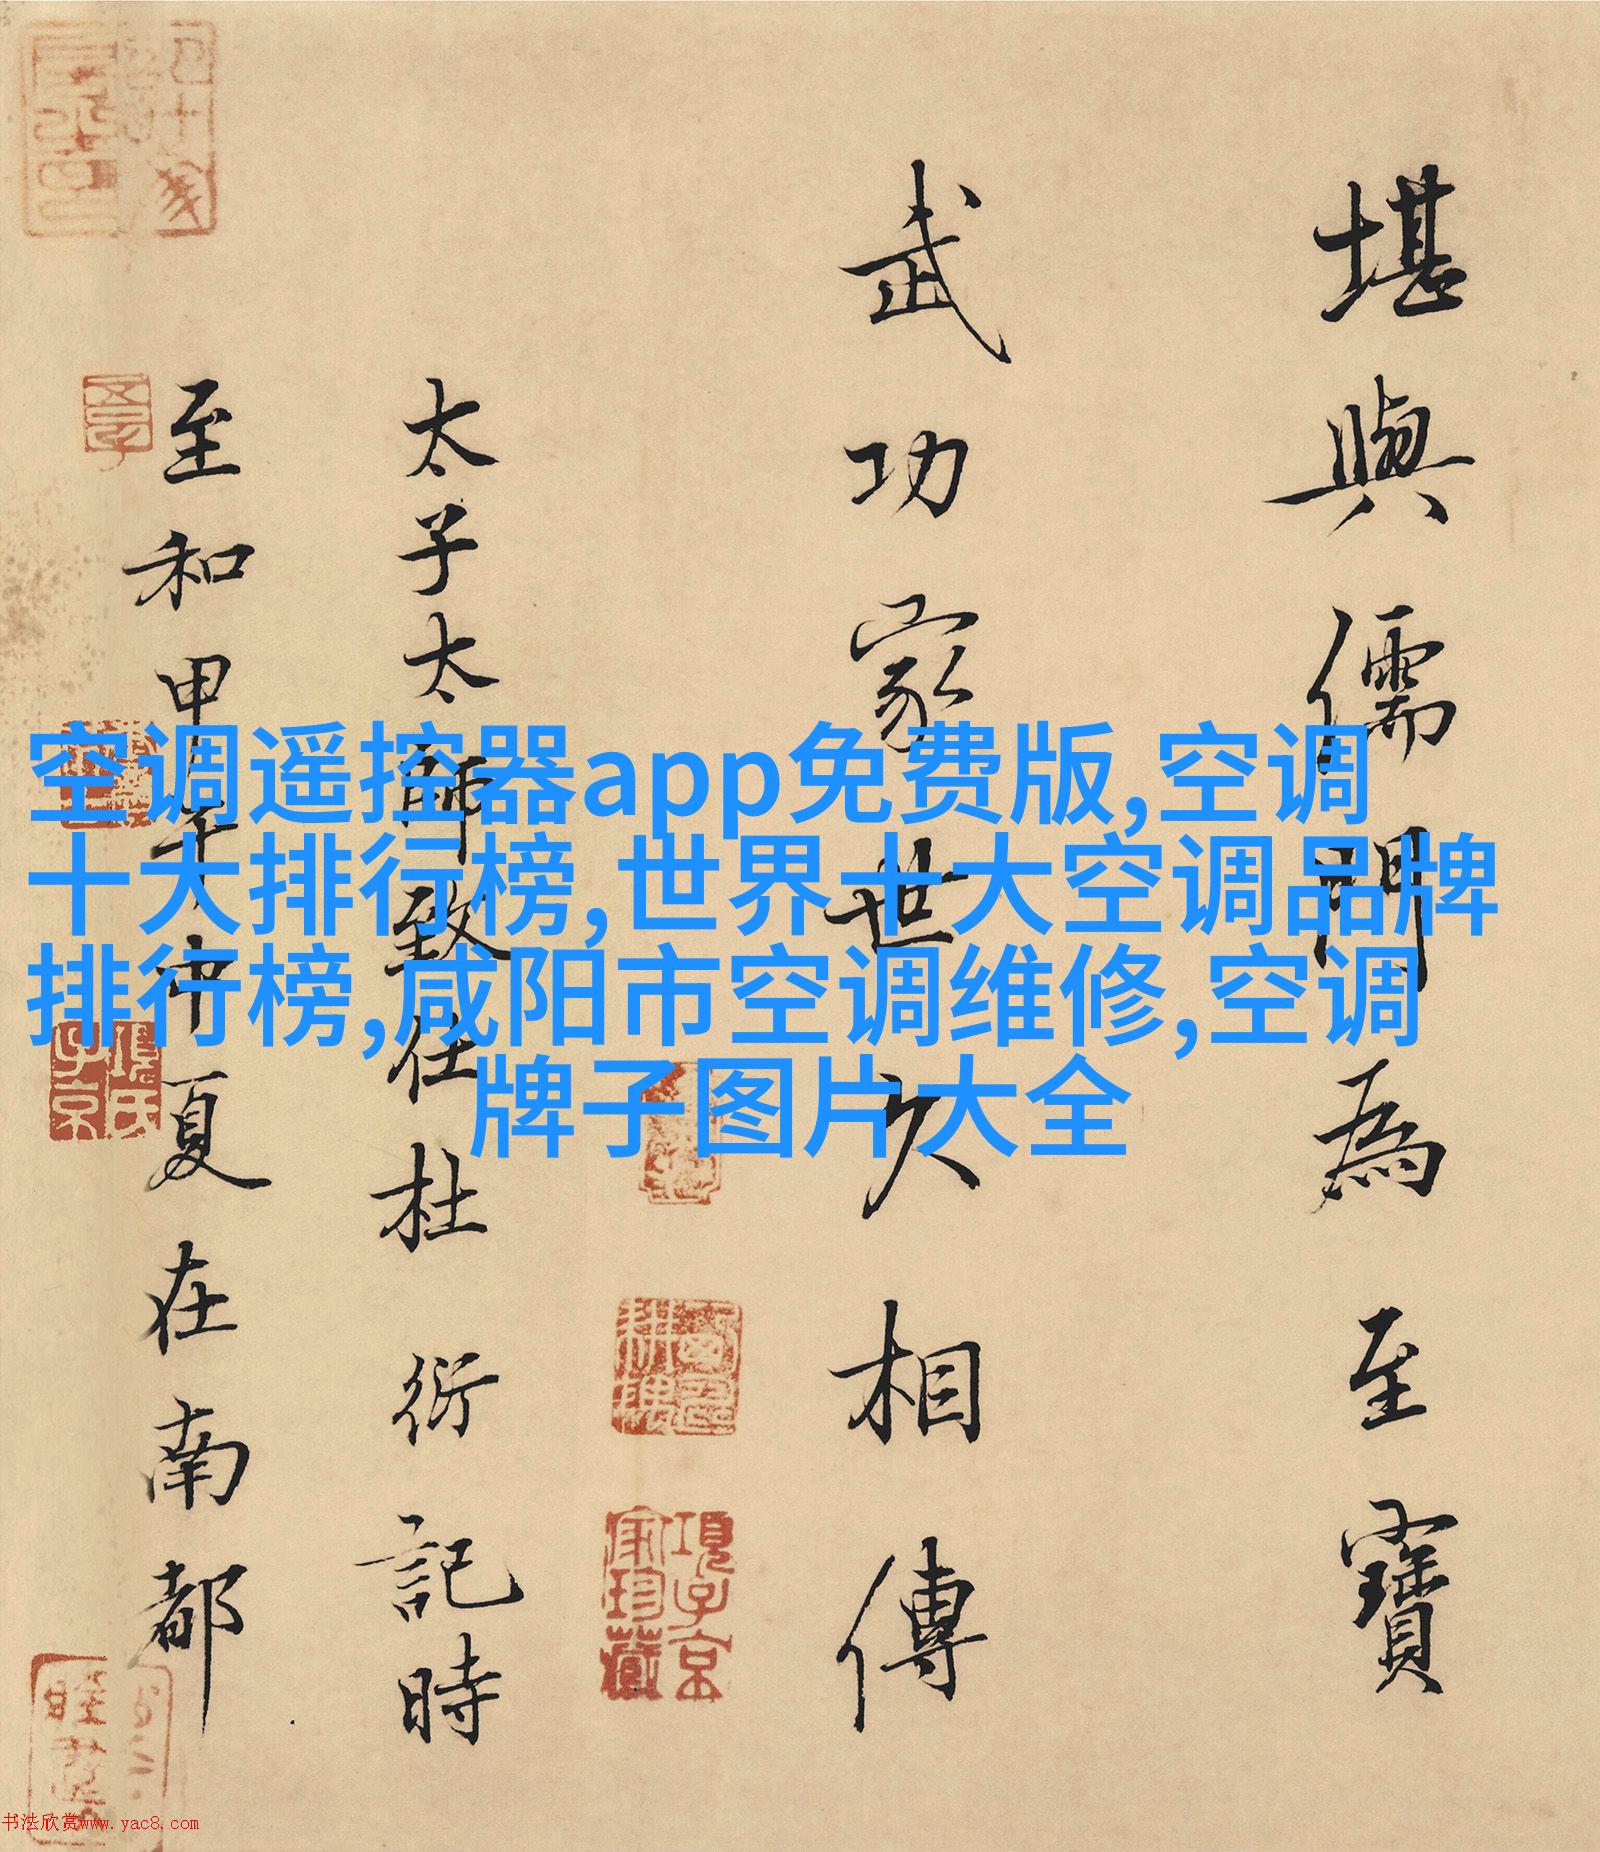 堪輿儒門為至寶
武功家世久相傳
太子太師致仕杜衍記時
至和甲午中夏在南都
空调遥控器app免费版,空调
十大排行榜,世界十大空调品牌
排行榜,咸阳市空调维修,空调
牌子图片大全
項子京
家珍藏
項氏
子京
书法欣赏www.yac8.com